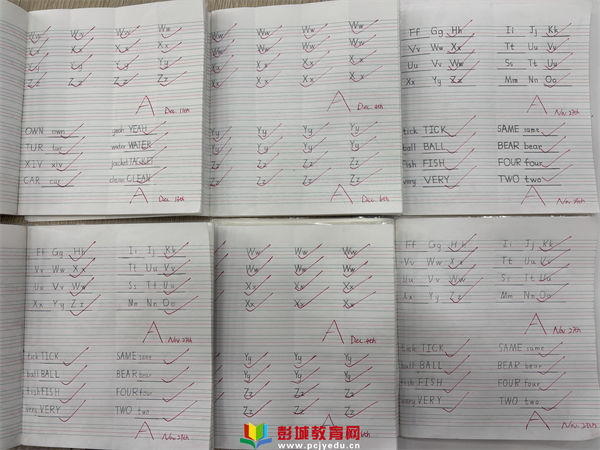 Ww Ww Ww Ww
Xx Xx Xx Xx
Yy Yy Yy Yy
Zz Zz Zz Zz
A
Dec 11th
OWN own yeah YEAH
TUR tur water WATER
XIV xiv jacket JACKET
CAR car clean CLEAN
A
Ww Ww Ww Ww
Ww Ww Ww Ww
Xx Xx Xx Xx
Xx Xx Xx Xx
A
Dec 4th
Yy Yy Yy Yy
Yy Yy Yy Yy
Zz Zz Zz Zz
Zz Zz Zz Zz
A
Dec 6th
Ff Gg Hh Ii Jj Kk
Vv Ww Xx Tt Uu Vv
Uu Vv Ww Ss Tt Uu
Xx Yy Zz Mm Nn Oo
A
Nov 27th
tick TICK SAME same
ball BALL BEAR bear
fish FISH FOUR four
very VERY TWO two
A
Ff Gg Hh Ii Jj Kk
Vv Ww Xx Tt Uu Vv
Uu Vv Ww Ss Tt Uu
Xx Yy Zz Mm Nn Oo
A
Nov 27th
tick TICK SAME same
ball BALL BEAR bear
fish FISH FOUR four
very VERY TWO two
A
Nov 28th
Ww Ww Ww
Ww Ww Ww
Xx Xx Xx
Xx Xx Xx
A
Dec 4th
Yy Yy Yy
Yy Yy Yy
Zz Zz Zz
Zz Zz Zz
A
Ff Gg Hh Ii Jj Kk
Vv Ww Xx Tt Uu Vv
Uu Vv Ww Ss Tt Uu
Xx Yy Zz Mm Nn Oo
A
Nov 27th
tick TICK SAME same
ball BALL BEAR bear
fish FISH FOUR four
very VERY TWO two
A
Nov. 28th
彭城教育网
www.pcjyedu.cn